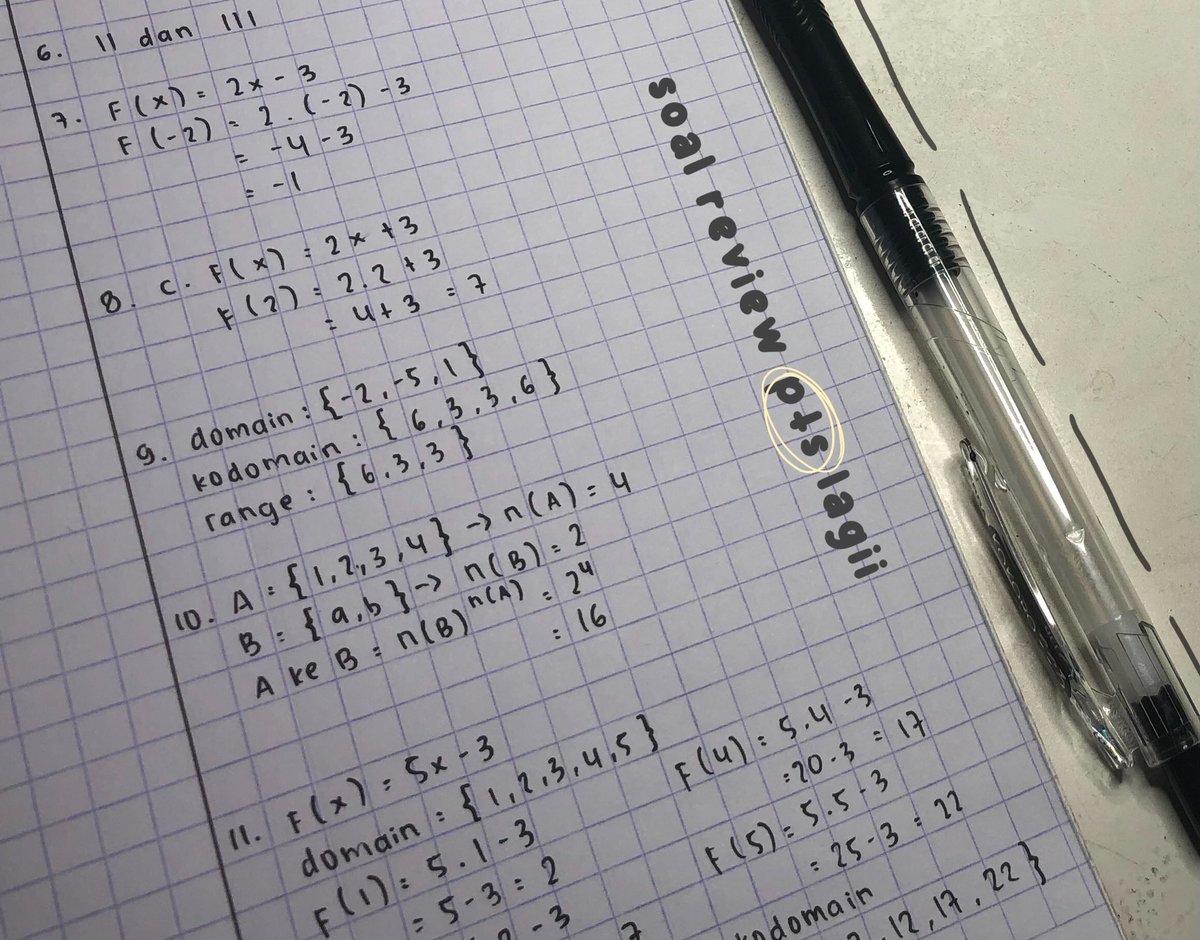 6. II dan III
7. F(x) = 2x - 3
F(-2) = 2 . (-2) - 3
= -4 - 3
= -1
8. c. F(x) = 2x + 3
F(2) = 2.2 + 3
= 4 + 3 = 7
9. domain : {-2, -5, 1}
kodomain : {6, 3, 3, 6}
range : {6, 3, 3}
10. A = {1, 2, 3, 4} -> n(A) = 4
B = {a, b} -> n(B) = 2
A ke B = n(B)^n(A) = 2^4
= 16
11. F(x) = 5x - 3
domain = {1, 2, 3, 4, 5}
F(1) = 5.1 - 3
= 5 - 3 = 2
- 3
7
F(4) = 5.4 - 3
= 20 - 3 = 17
F(5) = 5.5 - 3
= 25 - 3 = 22
kodomain
12, 17, 22}
soal review pts lagii